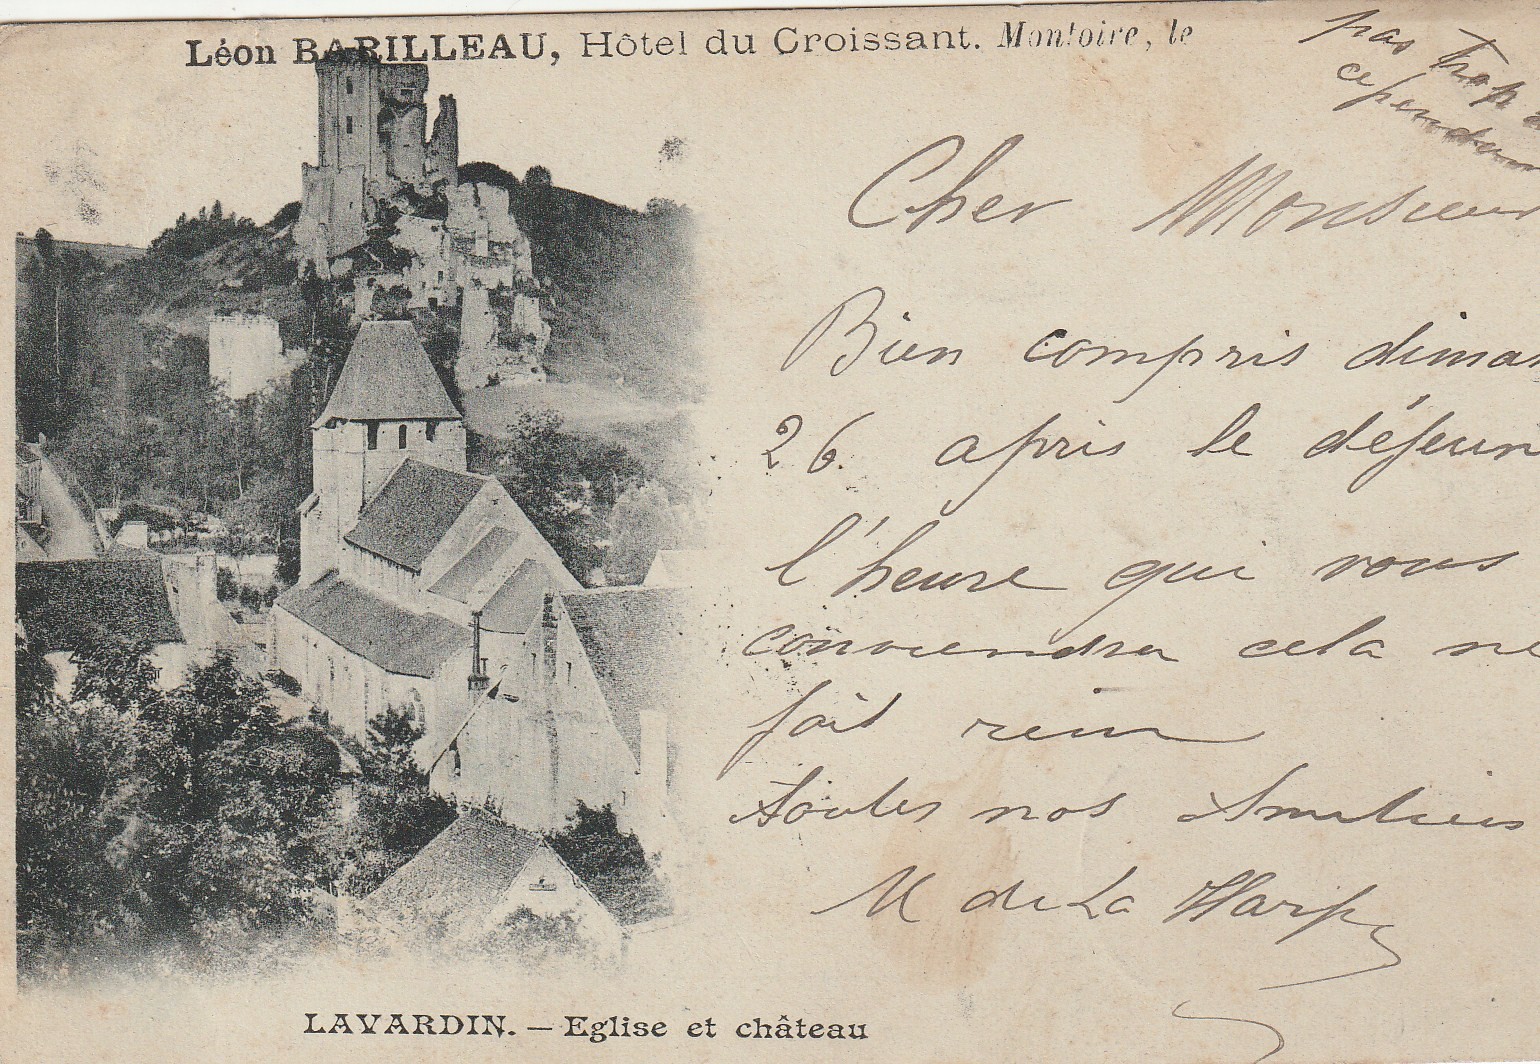 Léon BARILLEAU, Hôtel du Croissant. Montoire, le
pas trop
cependan
Cher Monsieur
Bien compris diman
26. après le déjeun
l'heure qui vous
conviendra cela ne
fait rien
toutes nos Amitiés
M de La Harpe
LAVARDIN. – Eglise et château